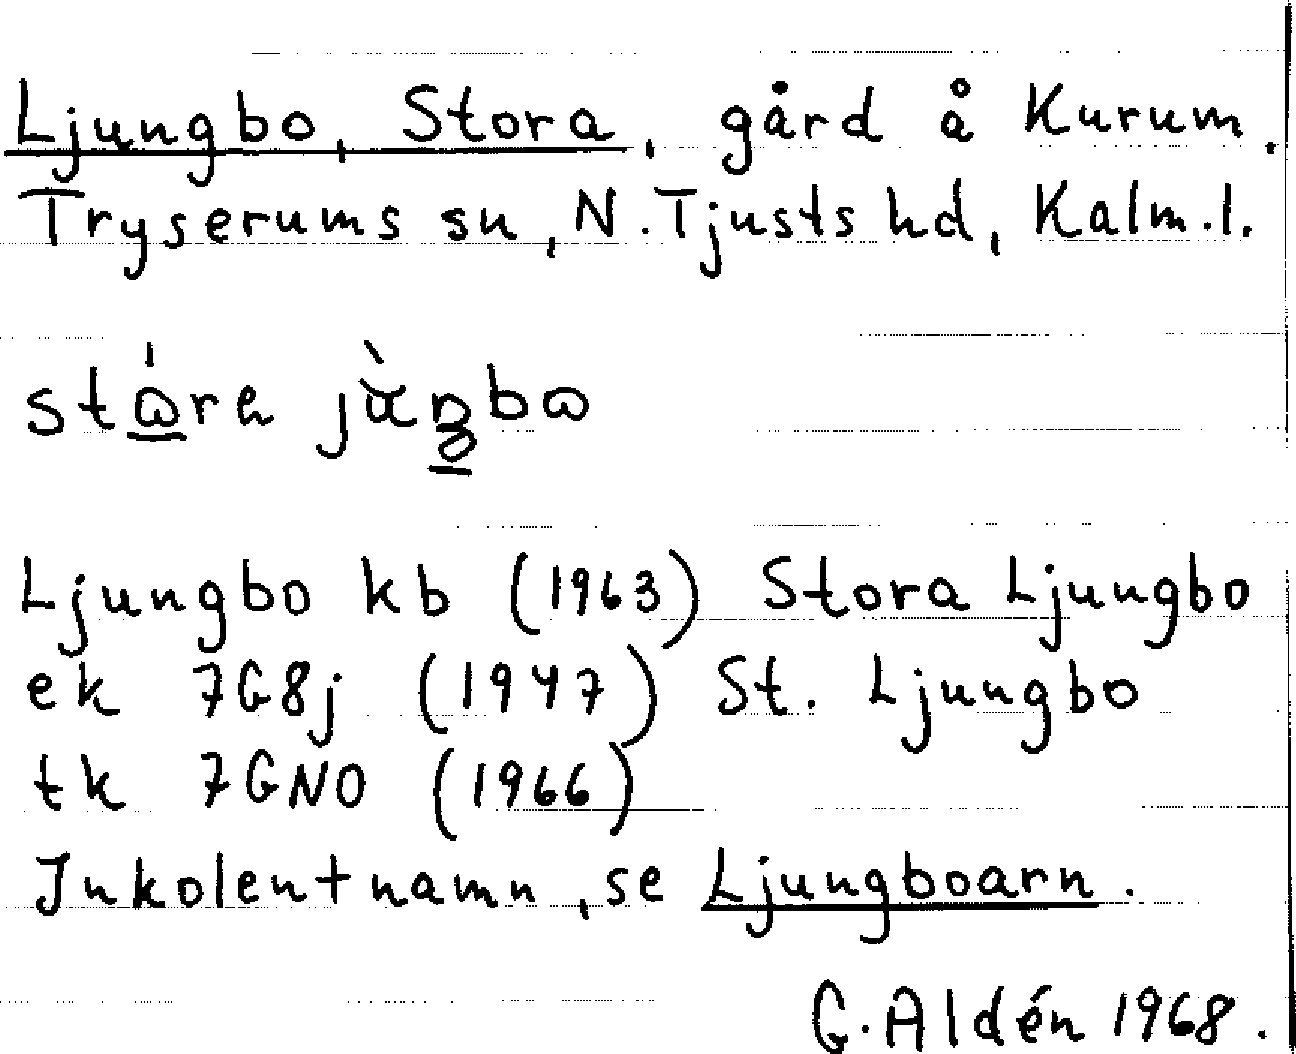 Ljungbo, Stora, gård å Kurum.
Tryserums sn, N. Tjusts hd, Kalm.l.
Ljungbo kb (1963) Stora Ljungbo
ek 7G8j (1947) St. Ljungbo
tk 7GNO (1966)
Inkolentnamn, se Ljungboarn.
G. Aldén 1968.